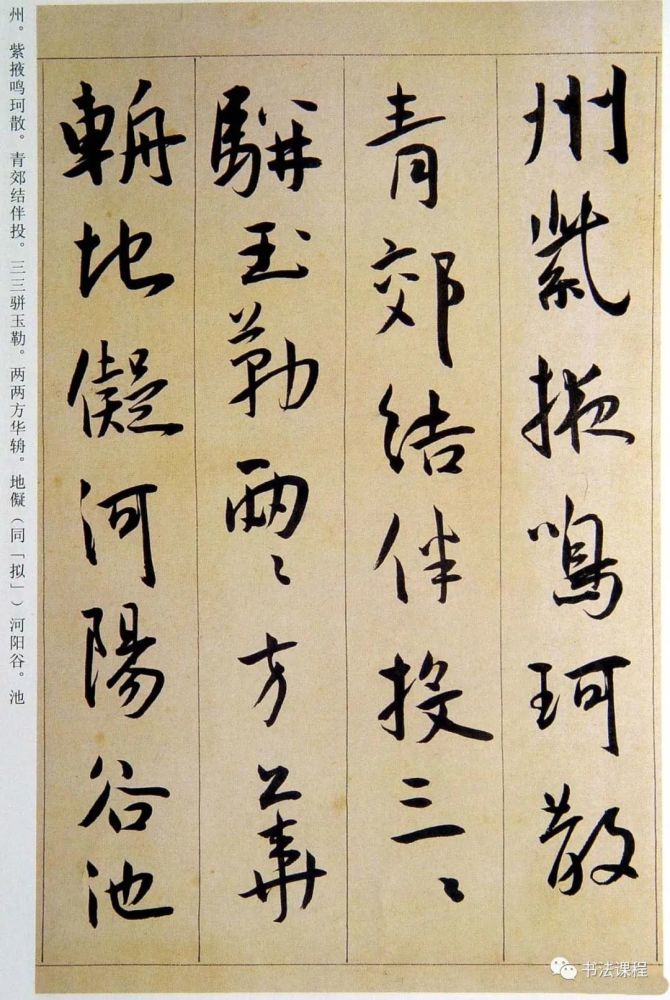 州紫掖鳴珂散
青郊結伴投三〻
駢玉勒兩〻方華
輈地儗河陽谷池
州。紫掖鸣珂散。青郊结伴投。三三骈玉勒。两两方华辀。地儗（同「拟」）河阳谷。池
书法课程